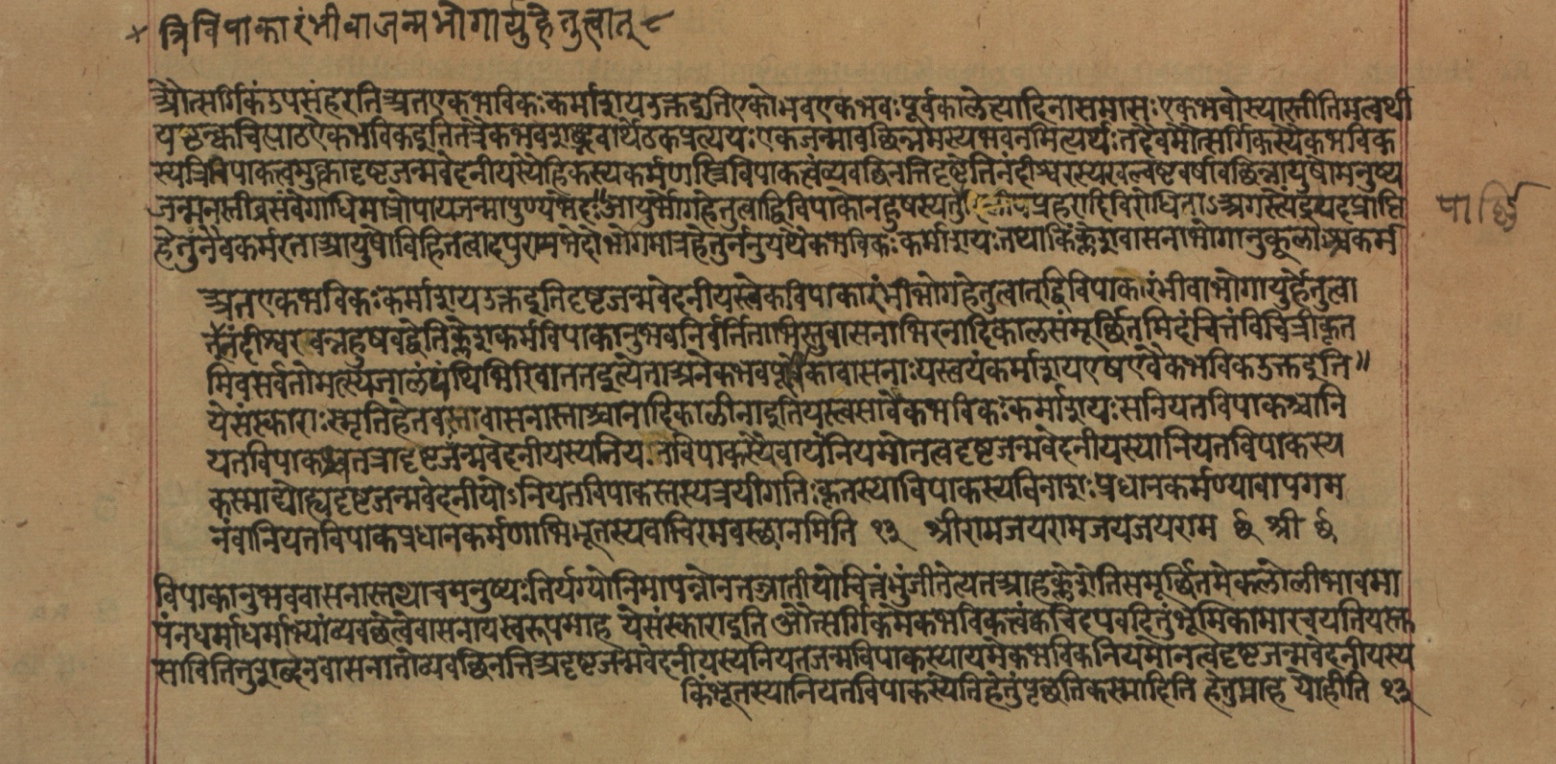 त्रिविपाकारंभीवाजन्मभोगायुर्हेतुत्वात् ८
औत्सर्गिकंउपसंहरतिअतएकभविकःकर्माशयउक्तइतिएकोभवएकभवःपूर्वकालेत्यादिनासमासःएकभवोस्यास्तीतिमत्वर्थी
यष्ठन्क्वचित्पाठऐकभविकइतितत्रैकभवशब्दाद्भवार्थेठकप्रत्ययःएकजन्मावछिन्नमस्यभवनमित्यर्थःतदेवमौत्सर्गिकस्यैकभविक
स्यत्रिविपाकत्वमुक्त्वादृष्टजन्मवेदनीयस्यैहिकस्यकर्मणस्त्रिविपाकत्वंव्यवछिनत्तिदृष्टेतिनंदीश्वरस्यखल्वष्टवर्षावछिन्नायुषोमनुष्य
जन्मनस्तीव्रसंवेगाधिमात्रोपायजन्मापुण्यभेदःआयुर्भोगहेतुत्वाद्विविपाकोनहुषस्यतु प्रहारादिविरोधिनाऽअगस्त्येंद्रपदप्राप्ति
पार्ष्णि
हेतुंनैवकर्मरताआयुषोविहितत्वादपुण्यभेदोभोगमात्रहेतुर्ननुयथैकभविकःकर्माशयःतथाकिंक्लेशवासनाभोगानुकूलाश्चकर्म
अतएकभविकःकर्माशयउक्तइतिदृष्टजन्मवेदनीयस्त्वेकविपाकारंभीभोगहेतुत्वात्द्विविपाकारंभीवाभोगायुर्हेतुत्वा
त्नंदीश्वरवन्नहुषवद्वेतिक्लेशकर्मविपाकानुभवनिर्वर्तिताभिस्तुवासनाभिरनादिकालसंमूर्छितमिदंचित्तंविचित्रीकृत
मिवसर्वतोमत्स्यजालंग्रंथिभिरिवाततइत्येताअनेकभवपूर्विकावासनाःयस्त्वयंकर्माशयएषएवैकभविकउक्तइति॥
येसंस्काराःस्मृतिहेतवस्तावासनास्ताश्चानादिकालीनाइतियस्त्वसावैकभविकःकर्माशयःसनियतविपाकश्चानि
यतविपाकश्चतत्रादृष्टजन्मवेदनीयस्यनियतविपाकस्यैवायंनियमोनत्वदृष्टजन्मवेदनीयस्यानियतविपाकस्य
कस्माद्योह्यदृष्टजन्मवेदनीयोऽनियतविपाकस्तस्यत्रयीगतिःकृतस्याविपाकस्यविनाशःप्रधानकर्मण्यावापगम
नंवानियतविपाकप्रधानकर्मणाभिभूतस्यवाचिरमवस्थानमिति १३ श्रीरामजयरामजयजयराम छ श्री छ
विपाकानुभववासनास्तथाचमनुष्यःतिर्यग्योनिमापन्नोनतज्जातीयोचितंभुंजीतेत्यतआहक्लेशेतिसमूर्छितमेकलोलीभावमा
पंनधर्माधर्माभ्यांव्यवछेत्तुंवासनायस्वरूपमाह येसंस्काराइति औत्सर्गिकमेकभविकत्वंकचिदपवदितुंभूमिकामारचयतियस्त्व
सावितितुशब्देनवासनातोव्यवछिनत्तिअदृष्टजन्मवेदनीयस्यनियतजन्मविपाकस्यायमेकभविकनियमोनत्वदृष्टजन्मवेदनीयस्य
किंभूतस्यानियतविपाकस्येतिहेतुंपृछतिकस्मादिति हेतुमाह योहीति १३